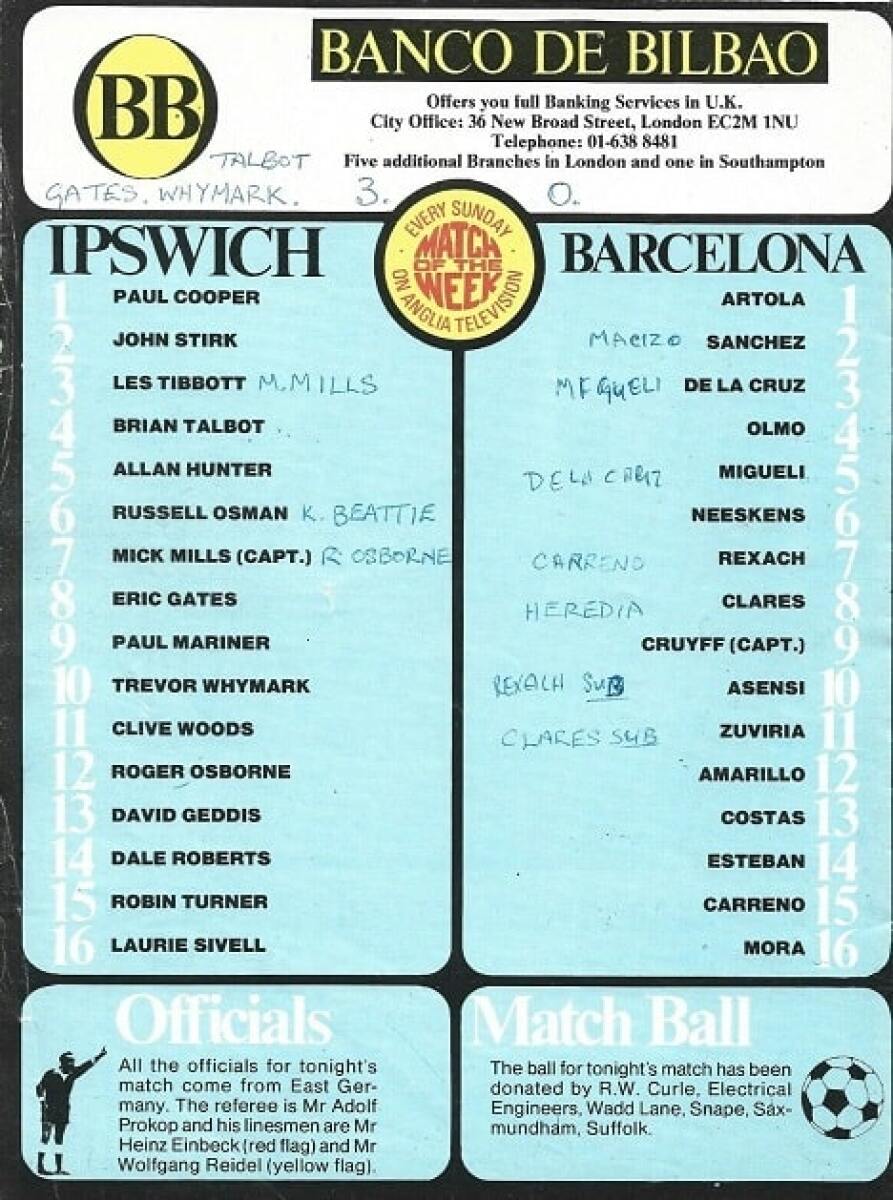 BB
BANCO DE BILBAO
Offers you full Banking Services in U.K.
City Office: 36 New Broad Street, London EC2M 1NU
Telephone: 01-638 8481
Five additional Branches in London and one in Southampton
TALBOT
GATES. WHYMARK. 3. 0.
EVERY SUNDAY
MATCH
OF THE
WEEK
ON ANGLIA TELEVISION
IPSWICH
1 PAUL COOPER
2 JOHN STIRK
3 LES TIBBOTT M.MILLS
4 BRIAN TALBOT
5 ALLAN HUNTER
6 RUSSELL OSMAN K. BEATTIE
7 MICK MILLS (CAPT.) R OSBORNE
8 ERIC GATES
9 PAUL MARINER
10 TREVOR WHYMARK
11 CLIVE WOODS
12 ROGER OSBORNE
13 DAVID GEDDIS
14 DALE ROBERTS
15 ROBIN TURNER
16 LAURIE SIVELL
BARCELONA
ARTOLA 1
MACIZO SANCHEZ 2
MEGUELI DE LA CRUZ 3
OLMO 4
DE LA CRUZ MIGUELI 5
NEESKENS 6
CARRENO REXACH 7
HEREDIA CLARES 8
CRUYFF (CAPT.) 9
REXACH SUB ASENSI 10
CLARES SUB ZUVIRIA 11
AMARILLO 12
COSTAS 13
ESTEBAN 14
CARRENO 15
MORA 16
Officials
All the officials for tonight's
match come from East Ger-
many. The referee is Mr Adolf
Prokop and his linesmen are Mr
Heinz Einbeck (red flag) and Mr
Wolfgang Reidel (yellow flag).
Match Ball
The ball for tonight's match has been
donated by R.W. Curle, Electrical
Engineers, Wadd Lane, Snape, Sax-
mundham, Suffolk.